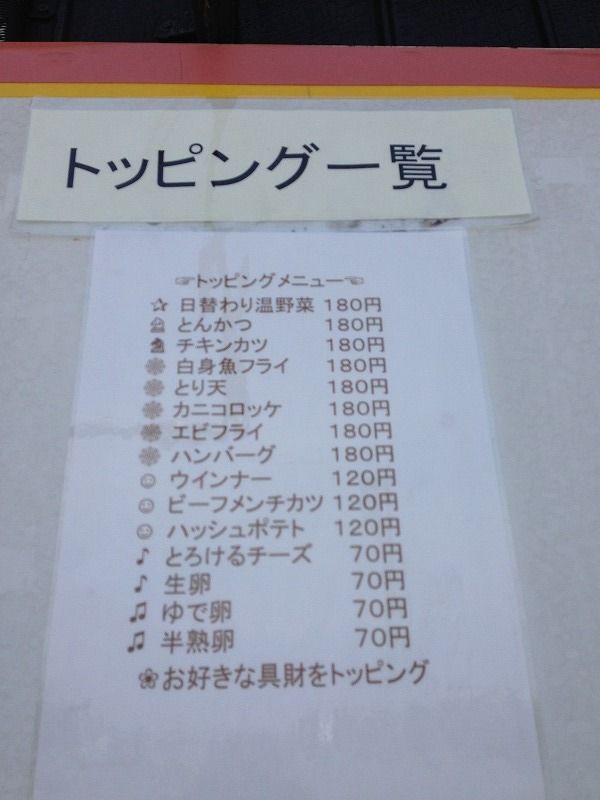 トッピング一覧
☞トッピングメニュー☜
☆ 日替わり温野菜 180円
とんかつ 180円
チキンカツ 180円
白身魚フライ 180円
とり天 180円
カニコロッケ 180円
エビフライ 180円
ハンバーグ 180円
☺ ウインナー 120円
☺ ビーフメンチカツ 120円
☺ ハッシュポテト 120円
♪ とろけるチーズ 70円
♪ 生卵 70円
♫ ゆで卵 70円
♫ 半熟卵 70円
❀お好きな具財をトッピング